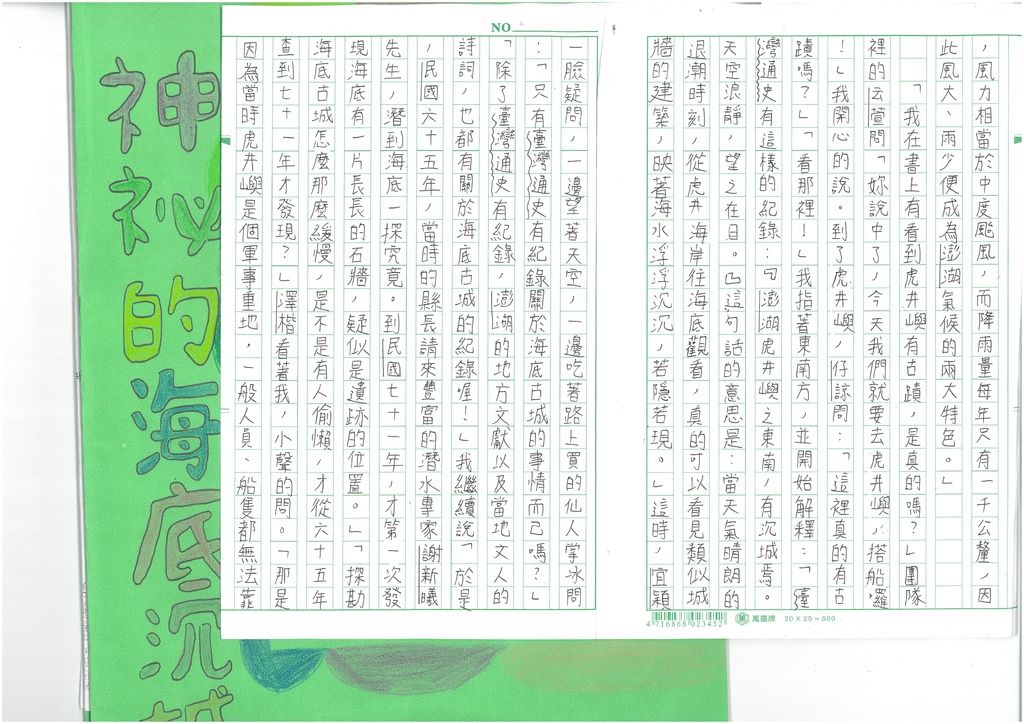 神祕的海底沉城
，風力相當於中度颱風，而降雨量每年只有一千公釐，因
此風大、雨少便成為澎湖氣候的兩大特色。」
「我在書上有看到虎井嶼有古蹟，是真的嗎？」團隊
裡的云萱問「妳說中了，今天我們就要去虎井嶼，搭船囉
！」我開心的說。到了虎井嶼，仔諒問：「這裡真的有古
蹟嗎？」「看那裡！」我指著東南方，並開始解釋：「臺
灣通史有這樣的紀錄：『澎湖虎井嶼之東南，有沉城焉。
天空浪靜，望之在目。』這句話的意思是：當天氣晴朗的
退潮時刻，從虎井海岸往海底觀看，真的可以看見類似城
牆的建築，映著海水浮浮沉沉，若隱若現。」這時，宜穎
NO
一臉疑問，一邊望著天空，一邊吃著路上買的仙人掌冰問
：「只有臺灣通史有紀錄關於海底古城的事情而已嗎？」
「除了臺灣通史有紀錄，澎湖的地方文獻以及當地文人的
詩詞，也都有關於海底古城的紀錄喔！」我繼續說「於是
，民國六十五年，當時的縣長請來豐富的潛水專家謝新曦
先生，潛到海底一探究竟。到民國七十一年，才第一次發
現海底有一片長長的石牆，疑似是遺跡的位置。」「探勘
海底古城怎麼那麼緩慢，是不是有人偷懶，才從六十五年
查到七十一年才發現？」澤楷看著我，小聲的問。「那是
因為當時虎井嶼是個軍事重地，一般人員、船隻都無法靠
4 716868 023452
萬國牌 20 X 25 = 500